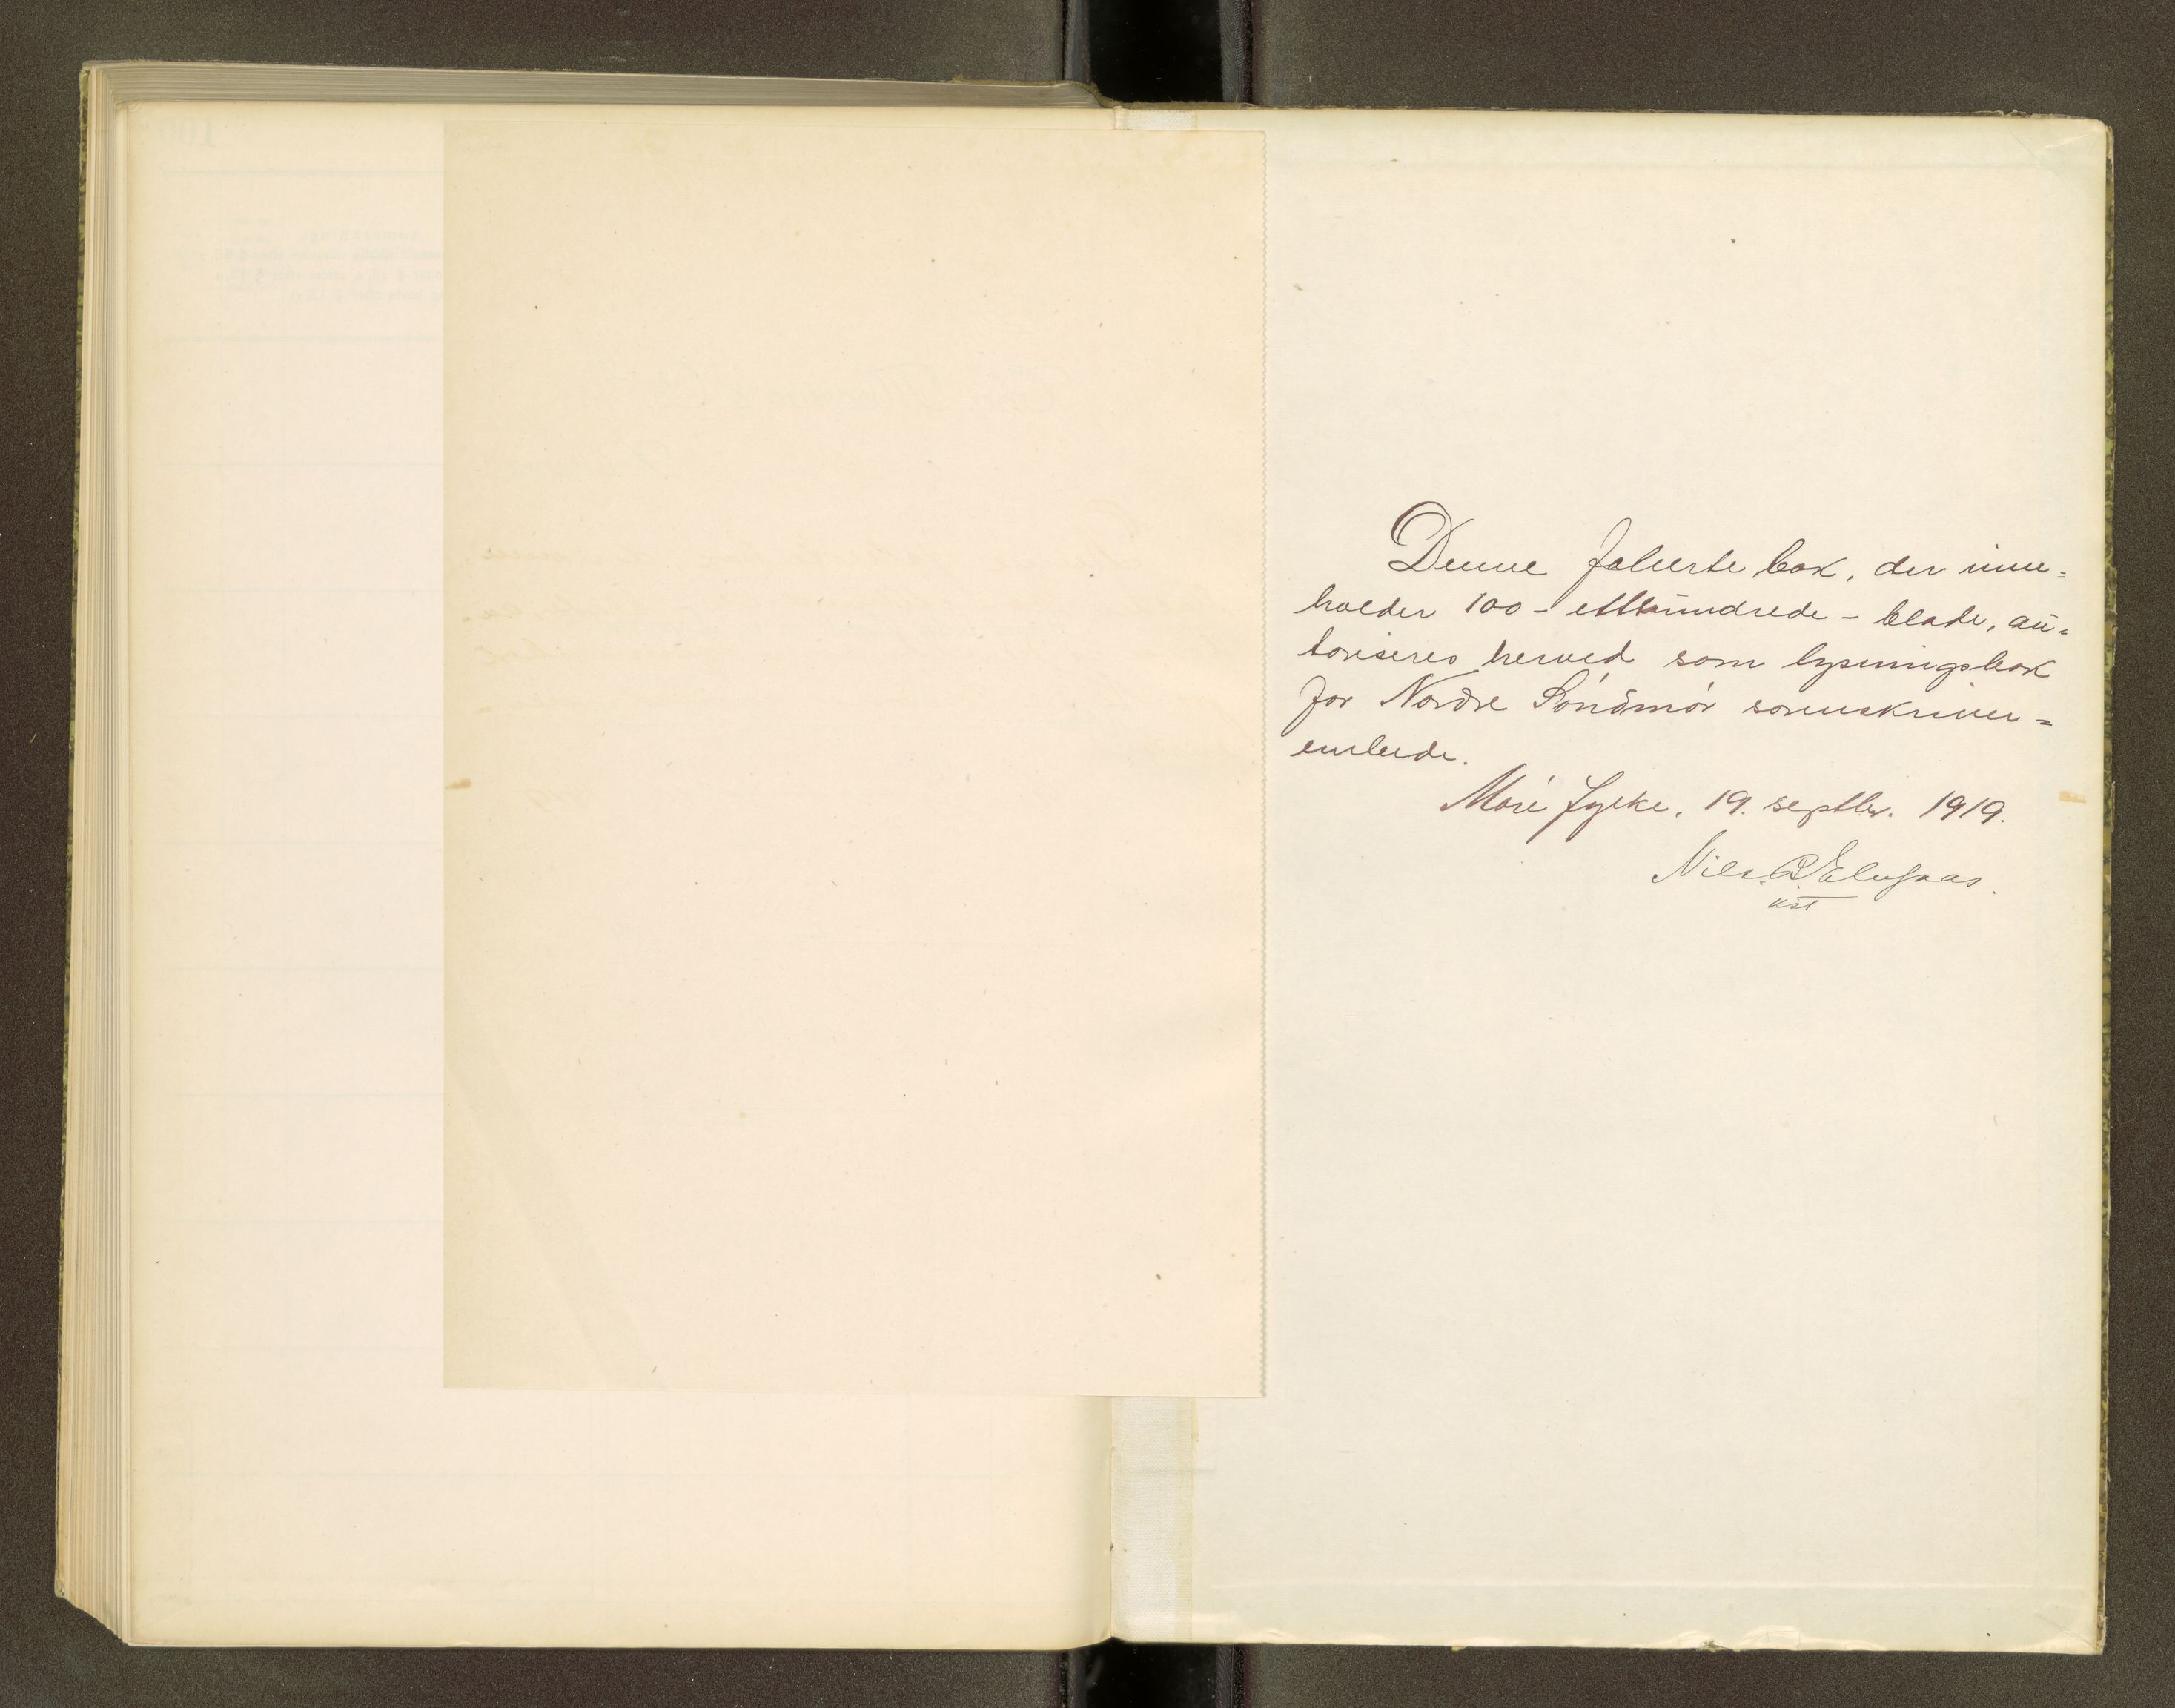 Denne folierte bok, der inne=
holder 100 - etthundrede - blade, au=
toriseres herved som lysningsbok
for Nordre Söndmör sorenskriver=
embede.
Möre fylke, 19. septbr. 1919.
Nils B.
kst